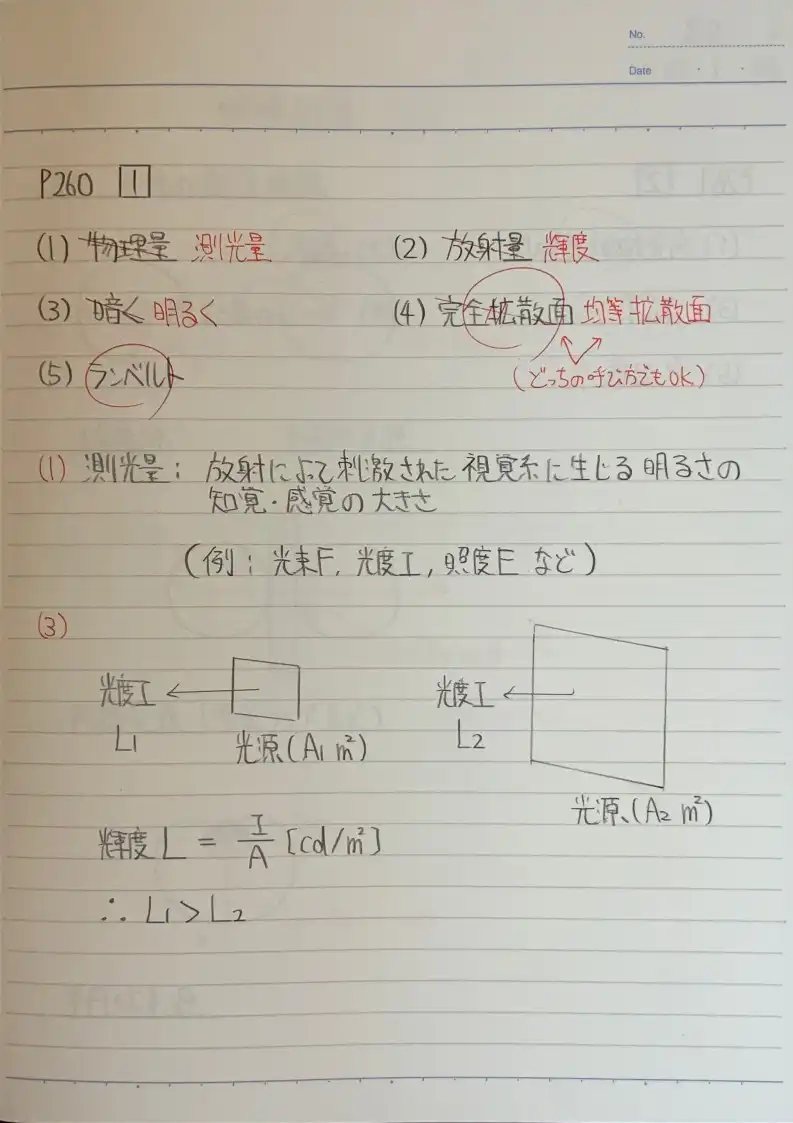 No.
Date
P260 1
(1) 物理量 測光量 (2) 放射量 輝度
(3) 暗く 明るく (4) 完全拡散面 均等拡散面
(5) ランベルト (どっちの呼び方でもOK)
(1) 測光量: 放射によって刺激された視覚系に生じる明るさの
知覚・感覚の大きさ
(例: 光束F, 光度I, 照度E など)
(3)
光度I 光度I
L1 光源(A1 m²) L2
光源(A2 m²)
輝度L = I/A [cd/m²]
∴ L1>L2